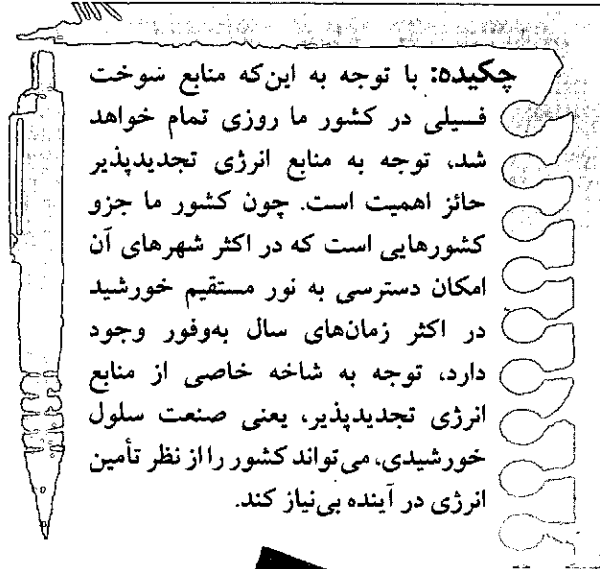 چکیده: با توجه به این‌که منابع سوخت
فسیلی در کشور ما روزی تمام خواهد
شد، توجه به منابع انرژی تجدیدپذیر
حائز اهمیت است. چون کشور ما جزو
کشورهایی است که در اکثر شهرهای آن
امکان دسترسی به نور مستقیم خورشید
در اکثر زمان‌های سال به‌وفور وجود
دارد، توجه به شاخه خاصی از منابع
انرژی تجدیدپذیر، یعنی صنعت سلول
خورشیدی، می‌تواند کشور را از نظر تأمین
انرژی در آینده بی‌نیاز کند.